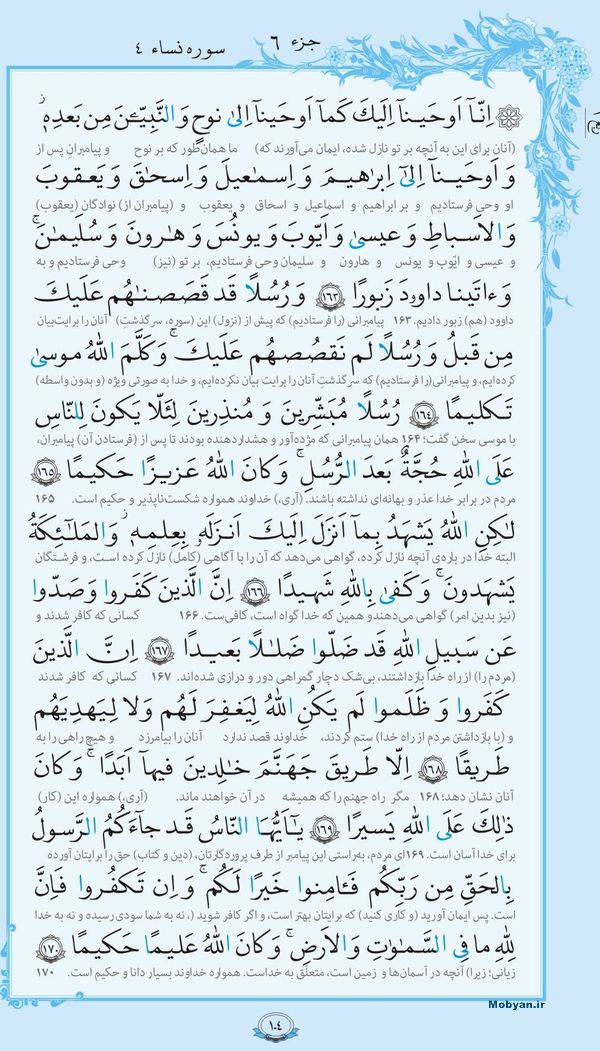 جزء ٦
سوره نساء ٤
اِنّـآ اَوحَيـنـآ اِلَيكَ كَمـآ اَوحَينـآ اِلىٰ نوحٍ وَ النَّبِيّـۧنَ مِن بَعدِهِ
(آنان برای این به آنچه بر تو نازل شده، ایمان می‌آورند که) ما همان‌طور که بر نوح و پیامبرانِ پس از
وَ اَوحَيـنـآ اِلىٰٓ اِبراهيـمَ وَ اِسمـٰعيلَ وَ اِسحـٰقَ وَ يَعقوبَ
او وحی فرستادیم و بر ابراهیم و اسماعیل و اسحاق و یعقوب و (پیامبران از) نوادگان (یعقوب)
وَ الاَسباطِ وَ عيسىٰ وَ اَيّوبَ وَ يونُسَ وَ هـٰرونَ وَ سُلَيمـٰنَ ۚ
و عیسی و ایّوب و یونس و هارون و سلیمان وحی فرستادیم، بر تو (نیز) وحی فرستادیم و به
وَ ءاتَينا داوودَ زَبورًا ﴿١٦٣﴾ وَ رُسُلًا قَد قَصَصنـٰهُم عَلَيكَ
داوود (هم) زبور دادیم. ۱۶۳ پیامبرانی (را فرستادیم) که پیش از (نزول) این (سوره، سرگذشتِ) آنان را برایت‌بیان
مِن قَبلُ وَ رُسُلًا لَم نَقصُصهُم عَلَيكَ ۚ وَ كَلَّمَ اللهُ موسىٰ
کرده‌ایم، و پیامبرانی(را فرستادیم) که سرگذشتِ آنان را برایت بیان نکرده‌ایم، و خدا به صورتی ویژه (و بدون واسطه)
تَـكليمًا ﴿١٦٤﴾ رُسُلًا مُبَشِّرينَ وَ مُنذِرينَ لِئَلّا يَكونَ لِلنّاسِ
با موسی سخن گفت؛ ۱۶۴ همان پیامبرانی که مژده‌آور و هشداردهنده بودند تا پس از (فرستادن آن) پیامبران،
عَلَى اللهِ حُجَّةٌ بَعدَ الرُّسُلِ ۚ وَ كانَ اللهُ عَزيزًا حَكيمًا ﴿١٦٥﴾
مردم در برابر خدا عذر و بهانه‌ای نداشته باشند. (آری،) خداوند همواره شکست‌ناپذیر و حکیم است. ۱۶۵
لـٰكِنِ اللهُ يَشهَدُ بِمـآ اَنزَلَ اِلَيكَ اَنزَلَهُ بِعِلمِهِ وَ المَلـٰٓئِكَةُ
البته خدا در باره‌ی آنچه نازل کرده، گواهی می‌دهد که آن را با آگاهی (کامل) نازل کرده است، و فرشتگان
يَشهَدونَ ۚ وَ كَفىٰ بِاللهِ شَهيدًا ﴿١٦٦﴾ اِنَّ الَّذينَ كَفَروا وَ صَدّوا
(نیز بدین امر) گواهی می‌دهندو همین که خدا گواه است، کافی‌ست. ۱۶۶ کسانی که کافر شدند و
عَن سَبيلِ اللهِ قَد ضَلّوا ضَلـٰلًا بَعيـدًا ﴿١٦٧﴾ اِنَّ الَّذينَ
(مردم را) از راه خدا بازداشتند، بی‌شک دچار گمراهی دور و درازی شده‌اند. ۱۶۷ کسانی که کافر شدند
كَفَروا وَ ظَلَموا لَم يَكُنِ اللهُ لِيَغفِـرَ لَهُم وَلا لِيَهدِيَهُم
و (با بازداشتن مردم از راه خدا) ستم کردند، خداوند قصد ندارد آنان را بیامرزد و هیچ راهی را به
طَريقًا ﴿١٦٨﴾ اِلّا طَريقَ جَهَنَّمَ خـٰلِدينَ فيهآ اَبَدًا ۚ وَ كانَ
آنان نشان دهد؛ ۱۶۸ مگر راه جهنم را که همیشه در آن خواهند ماند. (آری،) همواره این (کار)
ذٰلِكَ عَلَى اللهِ يَسيرًا ﴿١٦٩﴾ يـٰٓاَيُّهَا النّاسُ قَـد جآءَكُمُ الرَّسولُ
برای خدا آسان است. ۱۶۹ ای مردم، به‌راستی این پیامبر از طرف پروردگارتان، (دین و کتاب) حق را برایتان آورده
بِالحَقِّ مِن رَبِّكُم فَـٔامِنوا خَيرًا لَكُم ۚ وَ اِن تَكفُـروا فَاِنَّ
است. پس ایمان آورید (و کاری کنید) که برایتان بهتر است، و اگر کافر شوید (، نه به شما سودی رسیده و نه به خدا
لِلّهِ ما فِى السَّمـٰوٰتِ وَ الاَرضِ ۚ وَ كانَ اللهُ عَليمًا حَكيمًا ﴿١٧٠﴾
زیانی؛ زیرا) آنچه در آسمان‌ها و زمین است، متعلّق به خداست. همواره خداوند بسیار دانا و حکیم است. ۱۷۰
Mobyan.ir
١٠٤